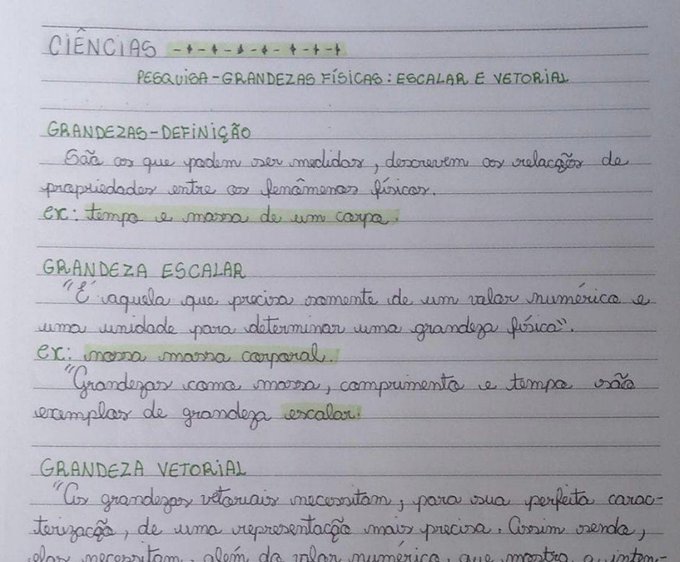 CIÊNCIAS
PESQUISA-GRANDEZAS FÍSICAS: ESCALAR E VETORIAL
GRANDEZAS-DEFINIÇÃO
São as que podem ser medidas, descrevem as relações de
propriedades entre os fenômenos físicos.
ex: tempo e massa de um corpo.
GRANDEZA ESCALAR
"É aquela que precisa somente de um valor numérico e
uma unidade para determinar uma grandeza física".
ex: nossa massa corporal.
"Grandezas como massa, comprimento e tempo são
exemplos de grandeza escalar.
GRANDEZA VETORIAL
"As grandezas vetoriais necessitam, para sua perfeita carac-
terização, de uma representação mais precisa. Assim sendo,
elas necessitam, além do valor numérico, que mostra a inten-